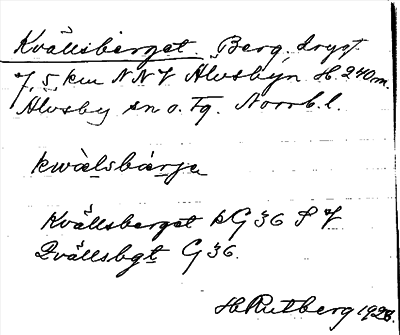 Kvällsberget. Berg, drygt
7,5 km NNV Älvsbyn. H. 240 m.
Älvsby sn o. Tg. Norrb. l.
kwälsbärja
Kvällsberget kG 36 S V
Qvällsbgt G 36.
H. Rutberg 1928.